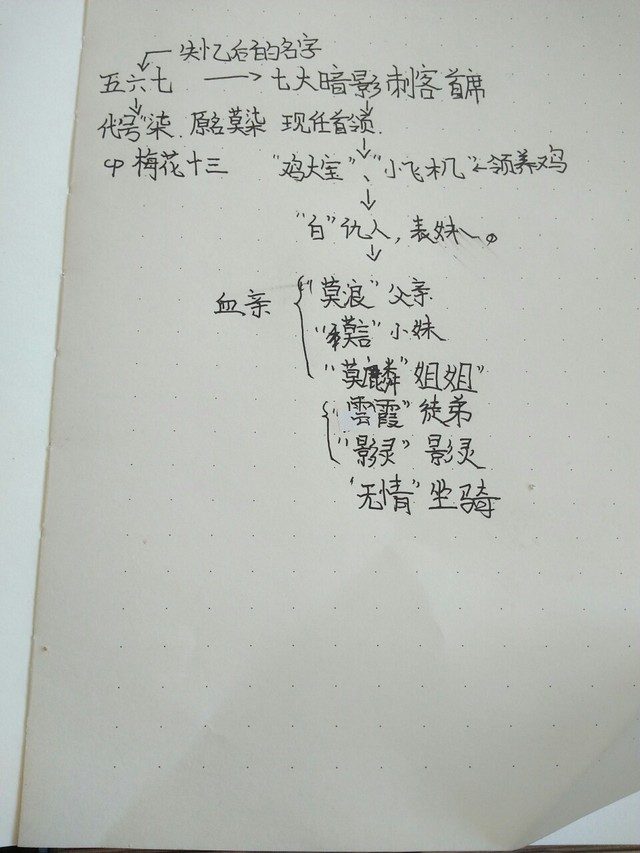 失忆后有的名字
五六七 → 七大暗影刺客首席
代号"柒 原名莫染 现任首领.
中 梅花十三 "鸡大宝"、"小飞机"←领养鸡
"白"仇人,表妹
血亲 "莫浪"父亲
"莫言"小妹
"莫麟"姐姐"
"雲霞"徒弟
"影灵"影灵
"无情"坐骑